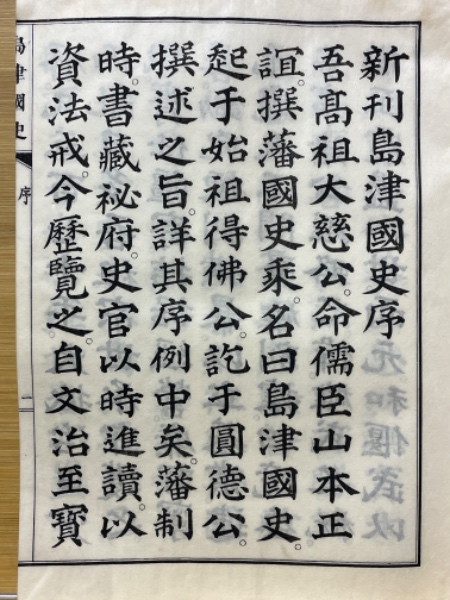 新刊島津國史序
吾髙祖大慈公。命儒臣山本正
誼。撰藩國史乘。名曰島津國史。
起于始祖得佛公。訖于圓德公。
撰述之旨。詳其序例中矣。藩制
時。書藏祕府。史官以時進讀。以
資法戒。今歷覽之。自文治至寳
島津國史
序
一